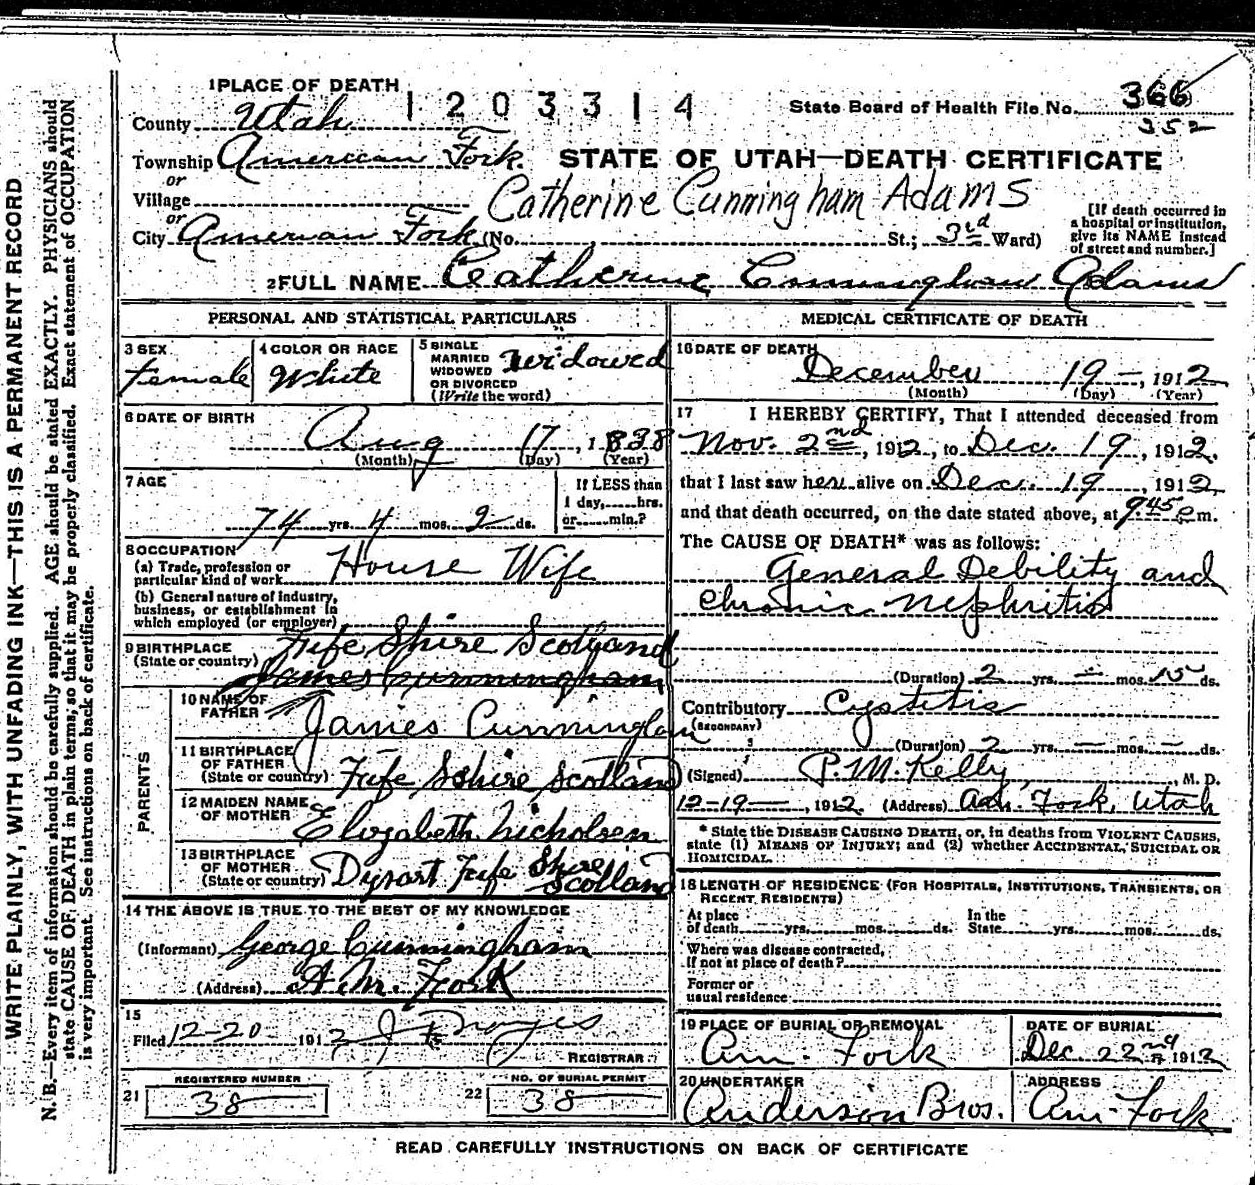 WRITE PLAINLY, WITH UNFADING INK—THIS IS A PERMANENT RECORD
N. B.—Every item of information should be carefully supplied. AGE should be stated EXACTLY. PHYSICIANS should
state CAUSE OF DEATH in plain terms, so that it may be properly classified. Exact statement of OCCUPATION
is very important. See instructions on back of certificate.
1 PLACE OF DEATH
1203314
State Board of Health File No. 366
352
County Utah
Township American Fork.
STATE OF UTAH—DEATH CERTIFICATE
or
Village
Catherine Cunningham Adams
or
City American Fork (No. St.; 3rd Ward)
[If death occurred in
a hospital or institution,
give its NAME instead
of street and number.]
2 FULL NAME Catherine Cunningham Adams
PERSONAL AND STATISTICAL PARTICULARS
3 SEX
Female
4 COLOR OR RACE
White
5 SINGLE
MARRIED
WIDOWED
OR DIVORCED
(Write the word)
widowed
6 DATE OF BIRTH
Aug 17, 1838
(Month) (Day) (Year)
7 AGE
74 yrs. 4 mos. 2 ds.
If LESS than
1 day,......hrs.
or......min.?
8 OCCUPATION
(a) Trade, profession or
particular kind of work
House Wife
(b) General nature of industry,
business, or establishment in
which employed (or employer)
9 BIRTHPLACE
(State or country)
Fife Shire Scotland
James Cunningham
PARENTS
10 NAME OF
FATHER
James Cunningham
11 BIRTHPLACE
OF FATHER
(State or country)
Fife Schire Scotland
12 MAIDEN NAME
OF MOTHER
Elizabeth Nicholsen
13 BIRTHPLACE
OF MOTHER
(State or country)
Dysart Fife Shire
Scotland
14 THE ABOVE IS TRUE TO THE BEST OF MY KNOWLEDGE
(Informant) George Cunningham
(Address) Am. Fork
15
Filed 12-20 1912
REGISTRAR
REGISTERED NUMBER
21 38
NO. OF BURIAL PERMIT
22 38
MEDICAL CERTIFICATE OF DEATH
16 DATE OF DEATH
December 19-, 1912
(Month) (Day) (Year)
17 I HEREBY CERTIFY, That I attended deceased from
Nov. 2nd, 1912, to Dec. 19, 1912.
that I last saw her alive on Dec. 19, 1912
and that death occurred, on the date stated above, at 9.45 P m.
The CAUSE OF DEATH* was as follows:
General Debility and
Chronic Nephritis
(Duration) 2 yrs. - mos. 15 ds.
Contributory Cystitis
(SECONDARY)
(Duration) 2 yrs. - mos. - ds.
(Signed) P. M. Kelly, M. D.
12-19-, 1912. (Address) Am. Fork, Utah
* State the DISEASE CAUSING DEATH, or, in deaths from VIOLENT CAUSES,
state (1) MEANS OF INJURY; and (2) whether ACCIDENTAL, SUICIDAL OR
HOMICIDAL.
18 LENGTH OF RESIDENCE (FOR HOSPITALS, INSTITUTIONS, TRANSIENTS, OR
RECENT RESIDENTS)
At place
of death......yrs......mos......ds.
In the
State......yrs......mos......ds.
Where was disease contracted,
if not at place of death?
Former or
usual residence
19 PLACE OF BURIAL OR REMOVAL
Am. Fork
DATE OF BURIAL
Dec. 22nd 1912
20 UNDERTAKER
Anderson Bros.
ADDRESS
Am. Fork
READ CAREFULLY INSTRUCTIONS ON BACK OF CERTIFICATE